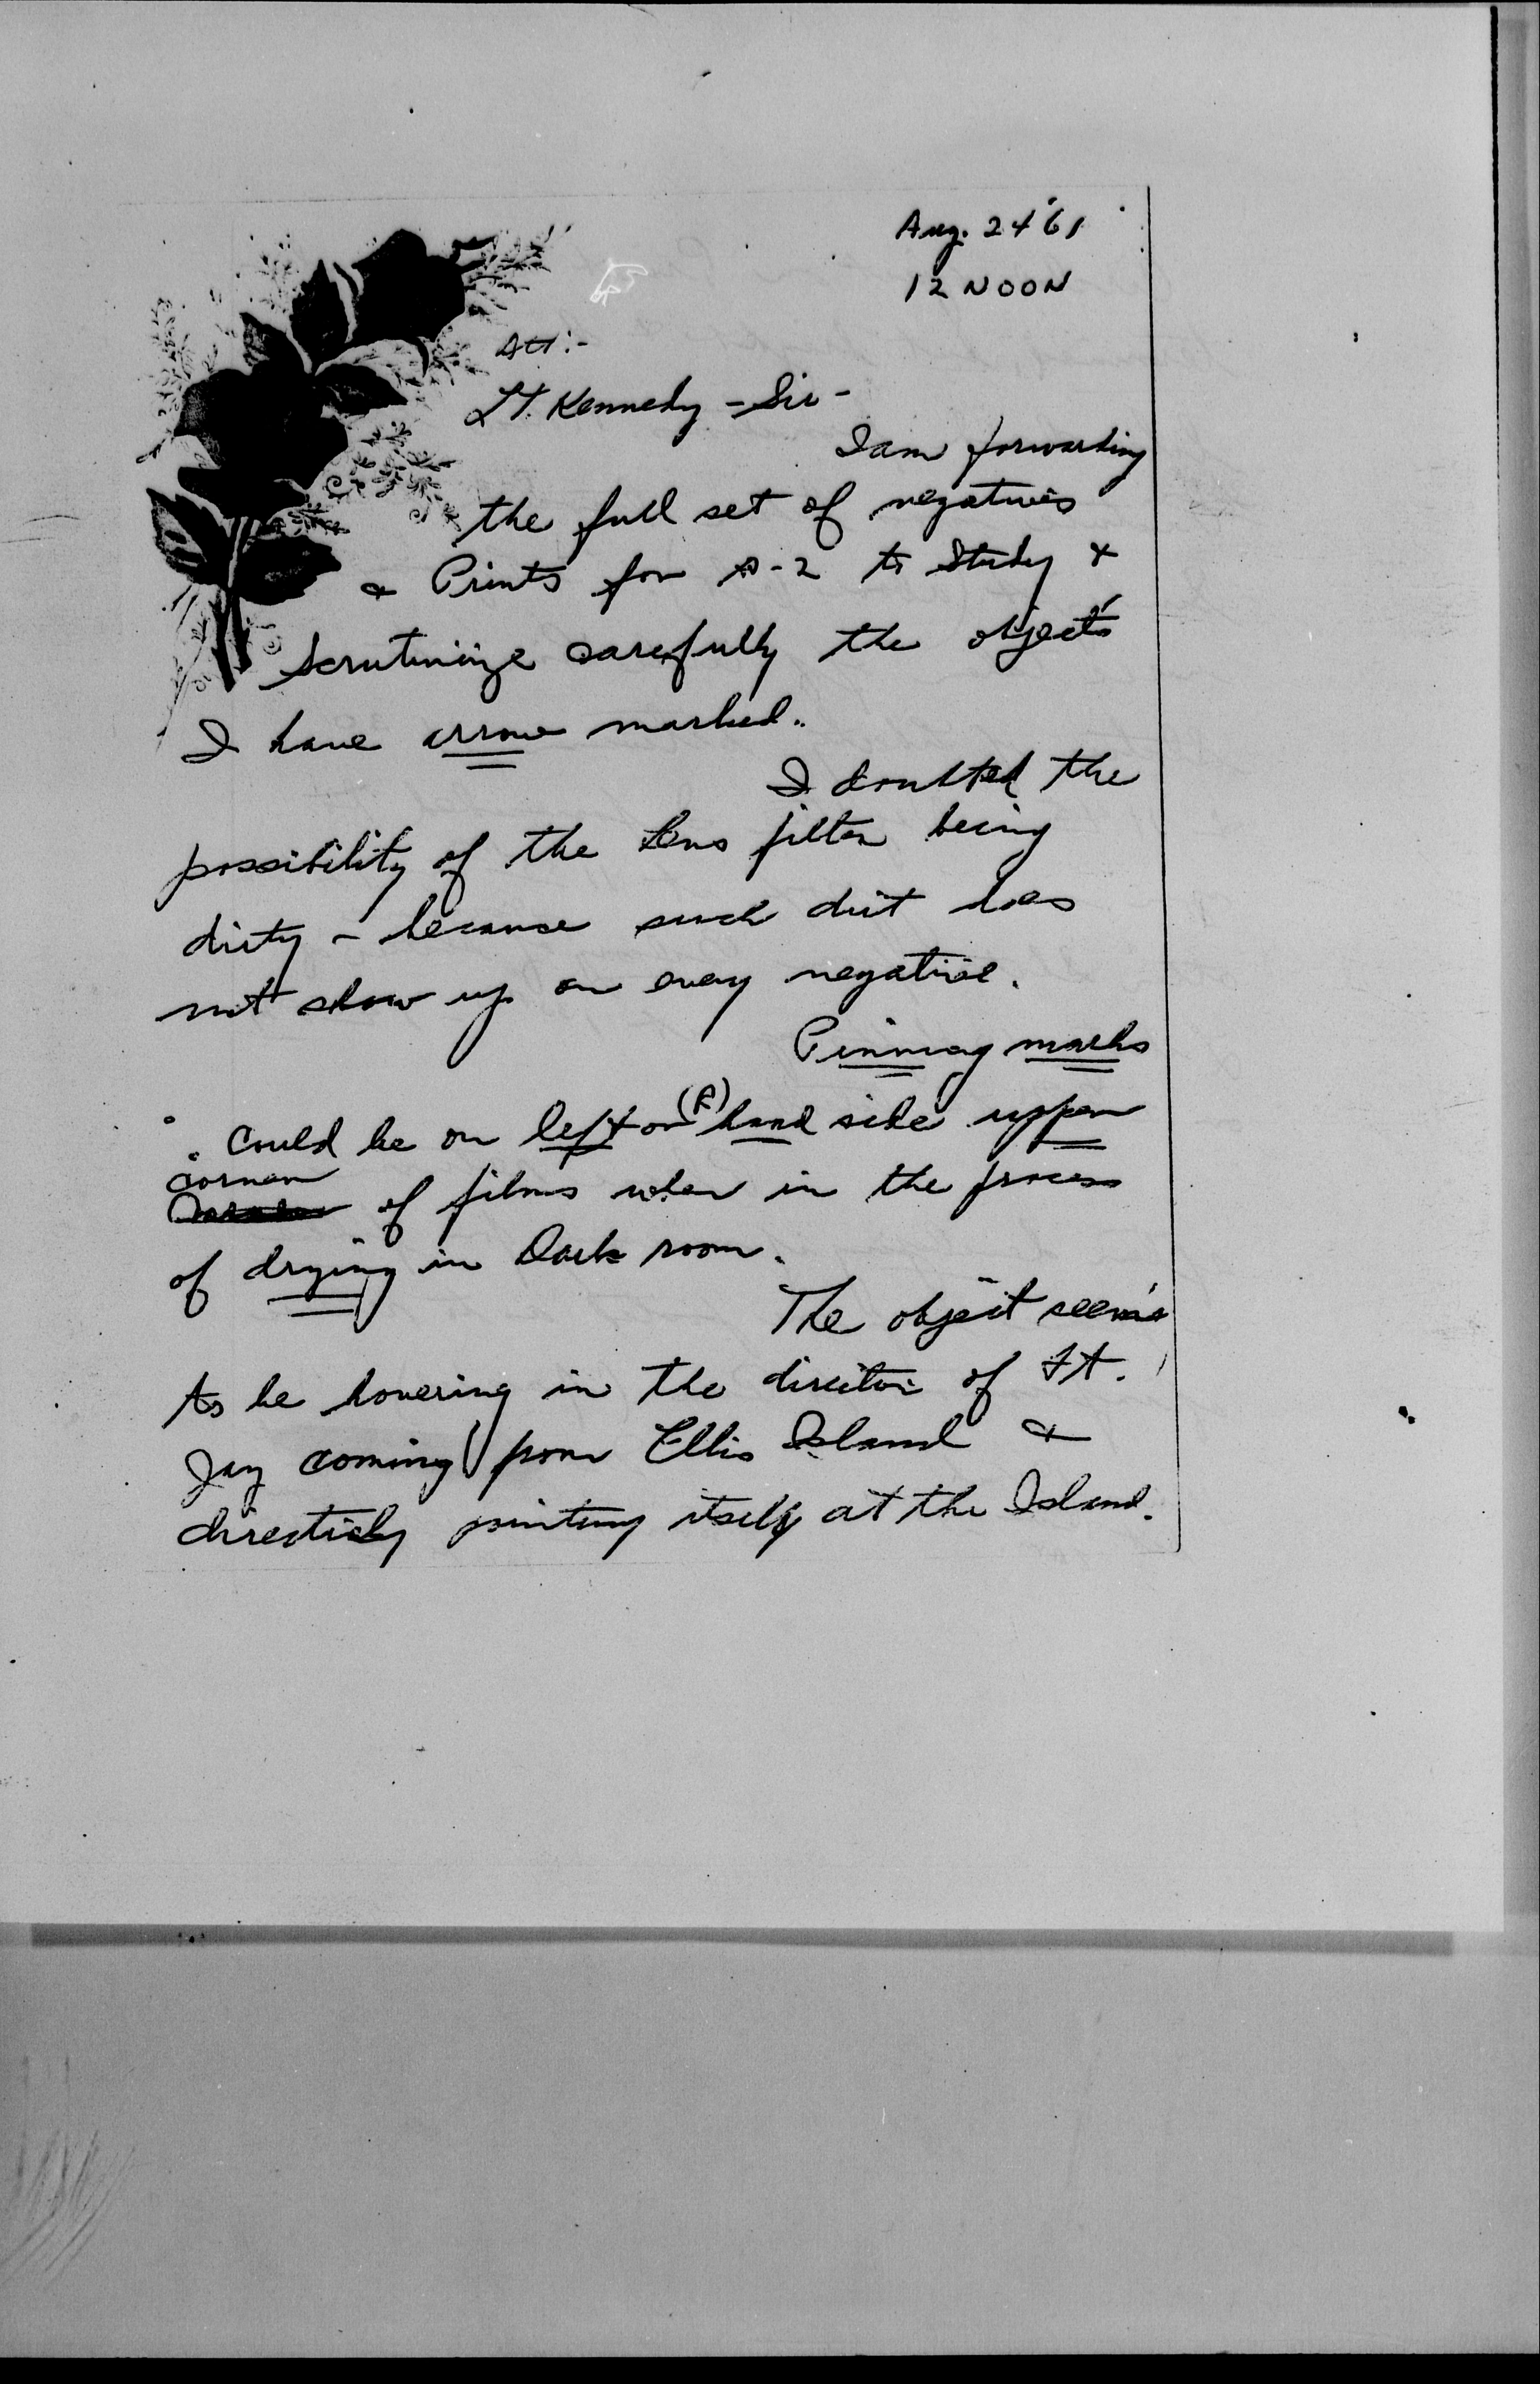 Aug. 24 '61
12 NOON
Att:-
Lt. Kennedy - Sir -
I am forwarding
the full set of negatives
& Prints for A-2 to Study &
Scrutinize carefully the objects
I have arrow marked.
I doubted the
possibility of the lens filter being
dirty - because such dirt does
not show up on every negative.
Pinning marks
could be on left or (R) hand side upper
corner
of films when in the process
of drying in Dark room.
The object seems
to be hovering in the direction of Ft.
Jay coming from Ellis Island &
directly pointing itself at the Island.